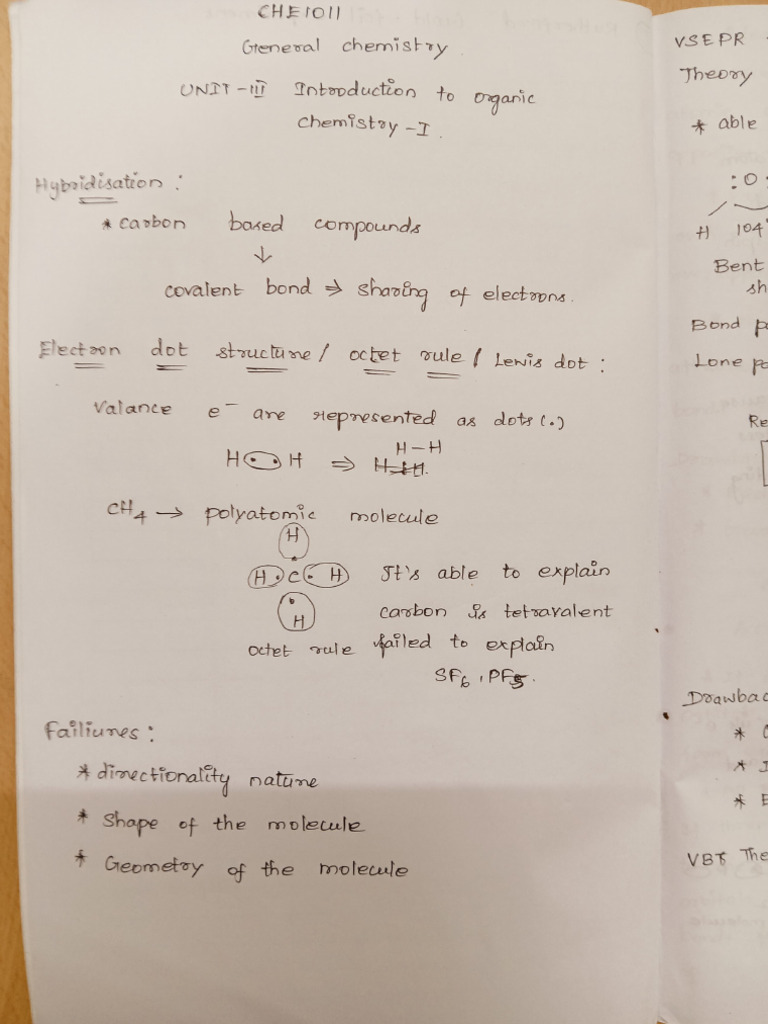 CHE1011
General chemistry.
UNIT-III Introduction to organic
chemistry-I.
Hybridisation:
* carbon based compounds
↓
covalent bond ⇒ sharing of electrons.
Electron dot structure/ octet rule/ Lewis dot:
Valance e⁻ are represented as dots(.)
H-H
H··H ⇒
CH₄ → polyatomic molecule
H
H·C·H It's able to explain
H carbon is tetravalent
octet rule failed to explain
SF₆, PF₅.
Failiures:
* directionality nature
* Shape of the molecule
* Geometry of the molecule
VSEPR
Theory
* able
:O:
H 104°
Bent
sh
Bond
Lone
Re
Drawbac
*
*
* E
VBT The